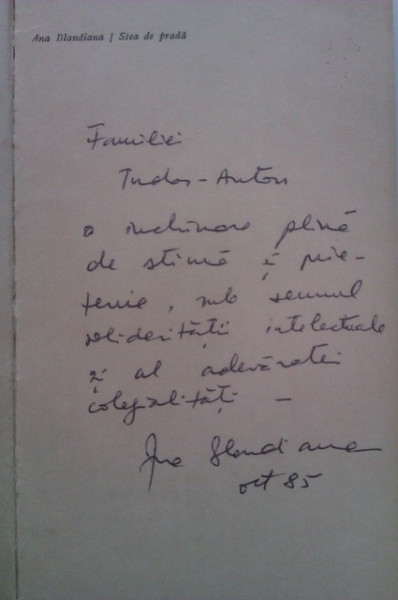 Ana Blandiana / Stea de pradă
Familiei
Tudor-Anton
o închinare plină
de stimă și prie-
tenie, sub semnul
solidarității intelectuale
și al adevăratei
colegialități —
Ana Blandiana
oct 85